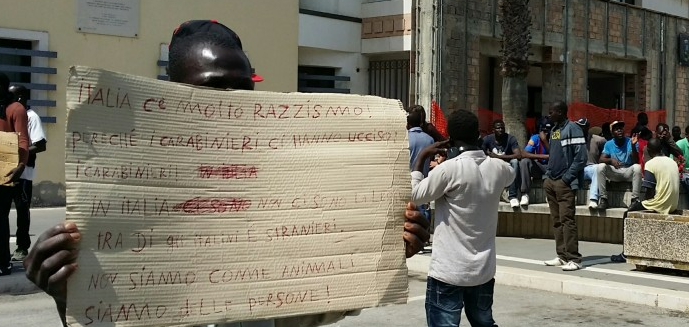 ITALIA C'E MOLTO RAZZISMO!
PERCHÉ I CARABINIERI CI HANNO UCCISO!
I CARABINIERI
IN ITALIA NON CI SONO LA LEGGE
TRA DI GLI ITALINI E STRANIERI.
NON SIAMO COMME ANIMALI
SIAMO DELLE PERSONE!